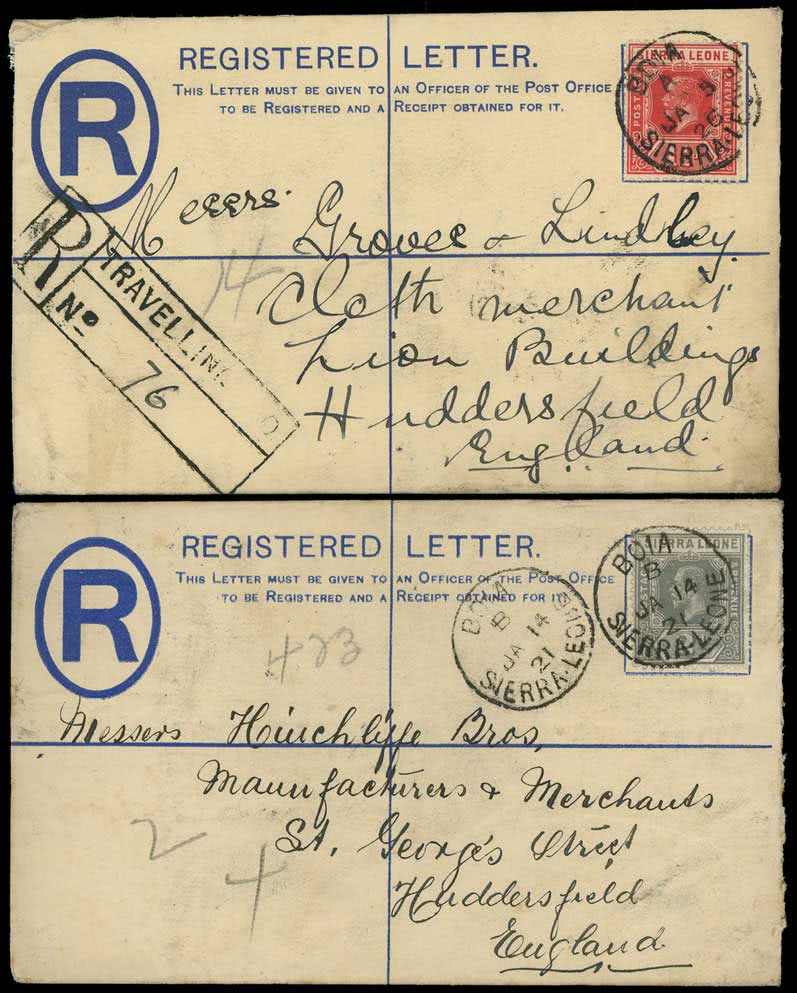 REGISTERED LETTER.
THIS LETTER MUST BE GIVEN TO AN OFFICER OF THE POST OFFICE
TO BE REGISTERED AND A RECEIPT OBTAINED FOR IT.
R
SIERRA LEONE
POSTAGE REVENUE
BOIA
A
JA 3
SIERRA-LEONE
R TRAVELLING
No 76
14
Messrs. Groves & Lindley
Cloth merchant
Lion Buildings
Huddersfield
England.
REGISTERED LETTER.
THIS LETTER MUST BE GIVEN TO AN OFFICER OF THE POST OFFICE
TO BE REGISTERED AND A RECEIPT OBTAINED FOR IT.
R
SIERRA LEONE
BOIA
B
JA 14
21
SIERRA-LEONE
BOIA
B
JA 14
21
SIERRA-LEONE
423
Messers Hinchliffe Bros,
Manufacturers & Merchants
St. George's Street
Huddersfield
England
2
4